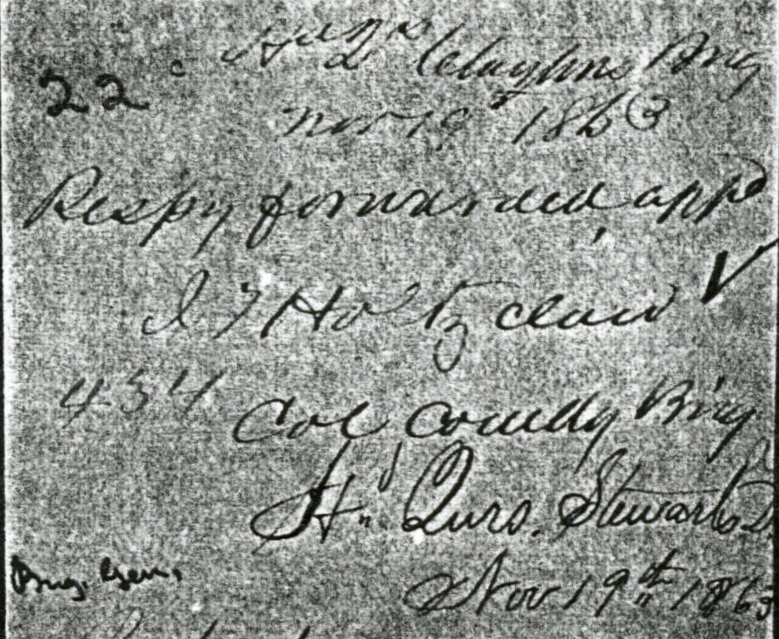 22
Hd Qrs Claytons Brig
Nov 19th 1863
Respy forwarded appd
J T Holtzclaw
434
Col Comdg Brig
Hd Qurs. Stewarts D.
Brig. Gen.
Nov 19th 1863